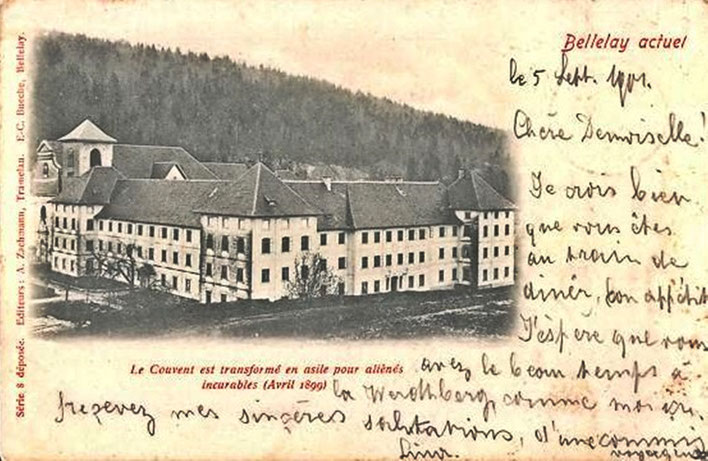 Bellelay actuel
Série 8 déposée. Editeurs: A. Zachmann, Tramelan. E.-C. Bueche, Bellelay.
le 5 Sept. 1901.
Chère Demoiselle!
Je crois bien
que vous êtes
au train de
dinér, bon appétit
J'espère que vous
avez le beau temps à
la comme moi ici.
reçevez mes sincères salutations, d'une commis
voyageuse
Le Couvent est transformé en asile pour aliénés
incurables (Avril 1899)